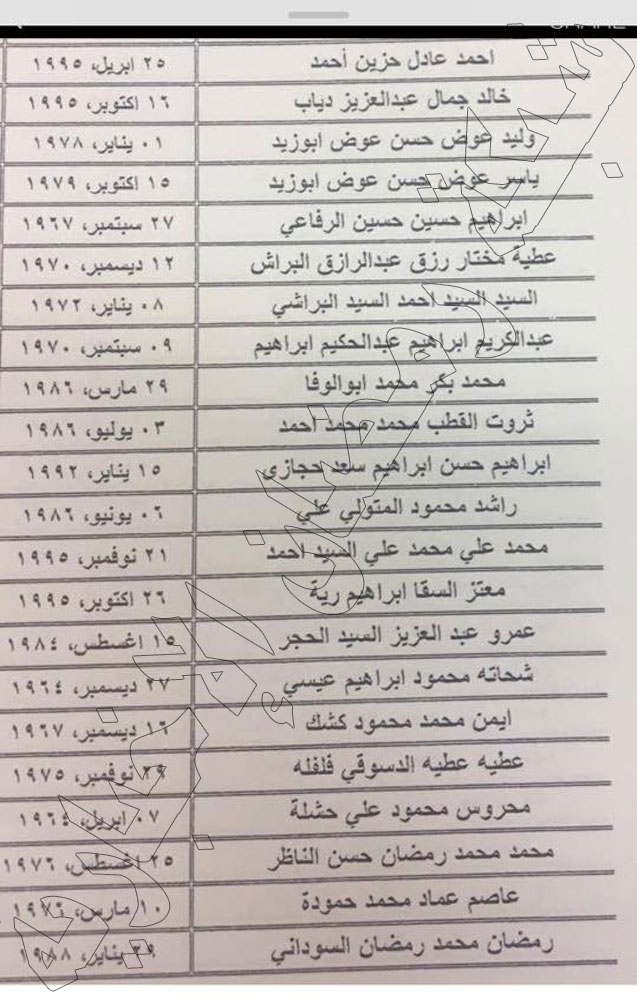 احمد عادل حزين أحمد ٢٥ ابريل، ١٩٩٥
خالد جمال عبدالعزيز دياب ١٦ اكتوبر، ١٩٩٥
وليد عوض حسن عوض ابوزيد ٠١ يناير، ١٩٧٨
ياسر عوض حسن عوض ابوزيد ١٥ اكتوبر، ١٩٧٩
ابراهيم حسين حسين الرفاعي ٢٧ سبتمبر، ١٩٦٧
عطية مختار رزق عبدالرازق البراش ١٢ ديسمبر، ١٩٧٠
السيد السيد احمد السيد البراشي ٠٨ يناير، ١٩٧٢
عبدالكريم ابراهيم عبدالحكيم ابراهيم ٠٩ سبتمبر، ١٩٧٠
محمد بكر محمد ابوالوفا ٢٩ مارس، ١٩٨٦
ثروت القطب محمد محمد احمد ٠٣ يوليو، ١٩٨٦
ابراهيم حسن ابراهيم سعد حجازى ١٥ يناير، ١٩٩٢
راشد محمود المتولي علي ٠٦ يونيو، ١٩٨٦
محمد علي محمد علي السيد احمد ٢١ نوفمبر، ١٩٩٥
معتز السقا ابراهيم رية ٢٦ اكتوبر، ١٩٩٥
عمرو عبد العزيز السيد الحجر ١٥ اغسطس، ١٩٨٤
شحاته محمود ابراهيم عيسي ٢٧ ديسمبر، ١٩٦٤
ايمن محمد محمود كشك ١٦ ديسمبر، ١٩٦٧
عطيه عطيه الدسوقي فلفله ٢٩ نوفمبر، ١٩٧٥
محروس محمود علي حشلة ٠٧ ابريل، ١٩٦٤
محمد محمد رمضان حسن الناظر ٢٥ اغسطس، ١٩٧٦
عاصم عماد محمد حمودة ١٠ مارس، ١٩٧٦
رمضان محمد رمضان السوداني ٢٩ يناير، ١٩٨٨